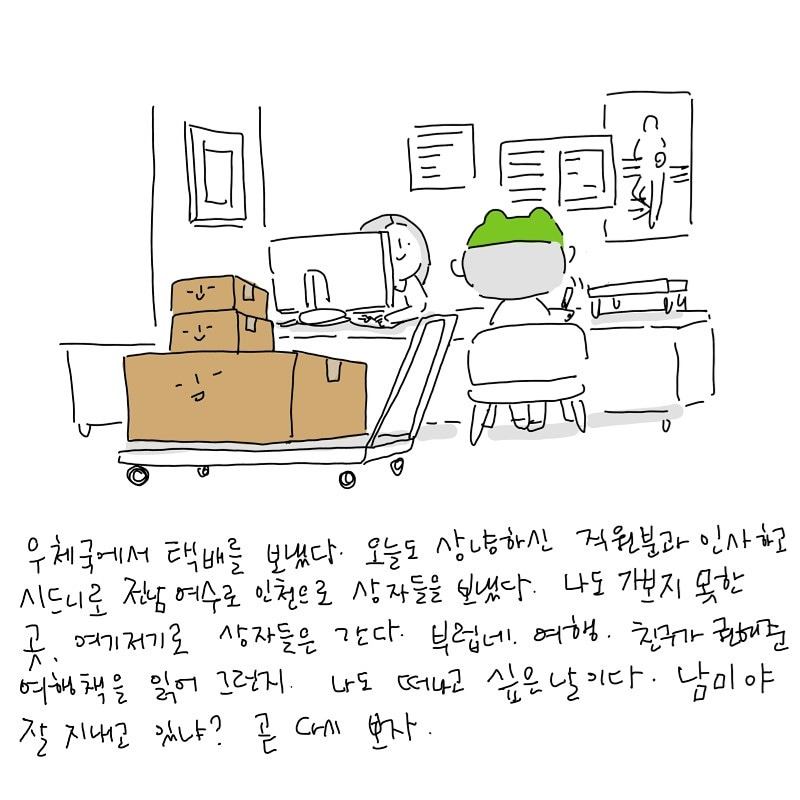 우체국에서 택배를 보냈다. 오늘도 상냥하신 직원분과 인사하고
시드니로 전남 여수로 인천으로 상자들을 보냈다. 나도 가보지 못한
곳, 여기저기로 상자들은 간다. 부럽네. 여행. 친구가 권해준
여행책을 읽어 그런지. 나도 떠나고 싶은 날이다. 남미야
잘 지내고 있냐? 곧 다시 보자.